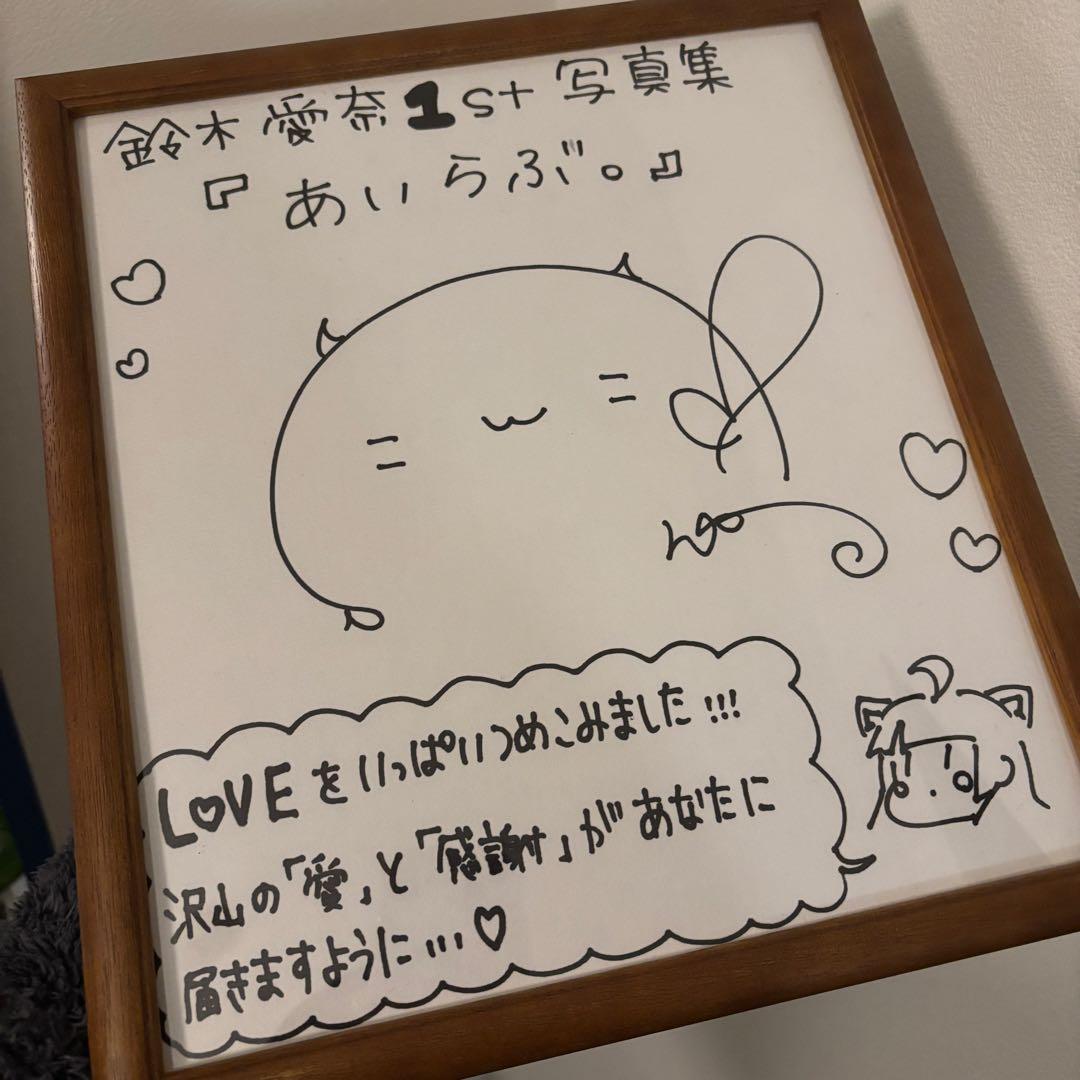 鈴木愛奈1st写真集
『あいらぶ。』
LOVEをいっぱいつめこみました!!!
沢山の「愛」と「感謝」があなたに
届きますように…♡